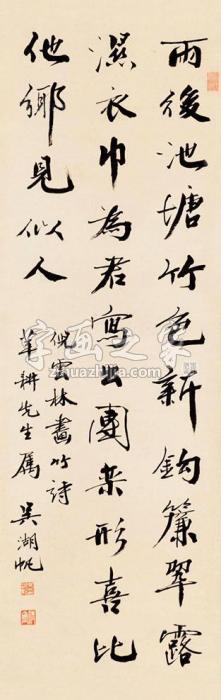 雨後池塘竹色新鈎簾翠露
濕衣巾為君寫出團栾形喜比
他鄉見似人
倪雲林畫竹詩
耕先生属
吳湖帆
字画之家